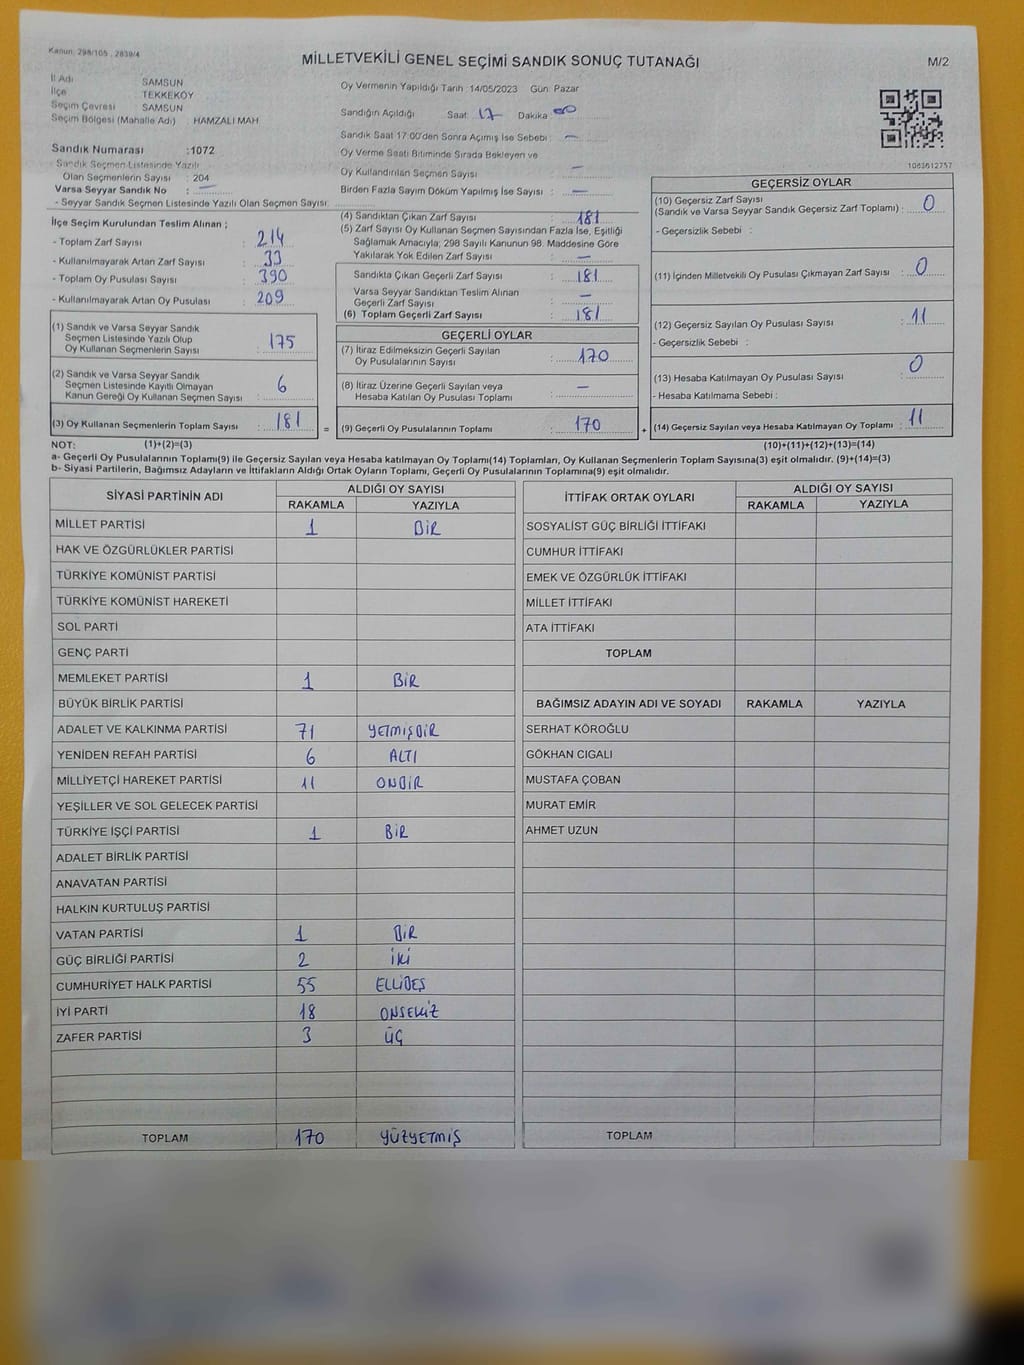 Kanun: 298/105, 2839/4
MİLLETVEKİLİ GENEL SEÇİMİ SANDIK SONUÇ TUTANAĞI
M/2
İl Adı SAMSUN
İlçe TEKKEKÖY
Seçim Çevresi SAMSUN
Seçim Bölgesi (Mahalle Adı) HAMZALI MAH
Sandık Numarası :1072
- Sandık Seçmen Listesinde Yazılı
Olan Seçmenlerin Sayısı : 204
Varsa Seyyar Sandık No : —
- Seyyar Sandık Seçmen Listesinde Yazılı Olan Seçmen Sayısı:
Oy Vermenin Yapıldığı Tarih 14/05/2023 Gün Pazar
Sandığın Açıldığı Saat 17 Dakika 00
Sandık Saat 17:00'den Sonra Açımış İse Sebebi : —
Oy Verme Saati Bitiminde Sırada Bekleyen ve
Oy Kullandırılan Seçmen Sayısı : —
Birden Fazla Sayım Döküm Yapılmış İse Sayısı : —
1083612757
İlçe Seçim Kurulundan Teslim Alınan ;
- Toplam Zarf Sayısı : 214
- Kullanılmayarak Artan Zarf Sayısı : 33
- Toplam Oy Pusulası Sayısı : 390
- Kullanılmayarak Artan Oy Pusulası : 209
(1) Sandık ve Varsa Seyyar Sandık
Seçmen Listesinde Yazılı Olup
Oy Kullanan Seçmenlerin Sayısı : 175
(2) Sandık ve Varsa Seyyar Sandık
Seçmen Listesinde Kayıtlı Olmayan
Kanun Gereği Oy Kullanan Seçmen Sayısı : 6
(3) Oy Kullanan Seçmenlerin Toplam Sayısı : 181 =
(4) Sandıktan Çıkan Zarf Sayısı : 181
(5) Zarf Sayısı Oy Kullanan Seçmen Sayısından Fazla İse, Eşitliği
Sağlamak Amacıyla; 298 Sayılı Kanunun 98. Maddesine Göre
Yakılarak Yok Edilen Zarf Sayısı : —
Sandıkta Çıkan Geçerli Zarf Sayısı : 181
Varsa Seyyar Sandıktan Teslim Alınan
Geçerli Zarf Sayısı : —
(6) Toplam Geçerli Zarf Sayısı : 181
GEÇERLİ OYLAR
(7) İtiraz Edilmeksizin Geçerli Sayılan
Oy Pusulalarının Sayısı : 170
(8) İtiraz Üzerine Geçerli Sayılan veya
Hesaba Katılan Oy Pusulası Toplamı : —
(9) Geçerli Oy Pusulalarının Toplamı : 170 +
GEÇERSİZ OYLAR
(10) Geçersiz Zarf Sayısı
(Sandık ve Varsa Seyyar Sandık Geçersiz Zarf Toplamı) : 0
- Geçersizlik Sebebi :
(11) İçinden Milletvekili Oy Pusulası Çıkmayan Zarf Sayısı : 0
(12) Geçersiz Sayılan Oy Pusulası Sayısı : 11
- Geçersizlik Sebebi :
(13) Hesaba Katılmayan Oy Pusulası Sayısı : 0
- Hesaba Katılmama Sebebi :
(14) Geçersiz Sayılan veya Hesaba Katılmayan Oy Toplamı : 11
NOT: (1)+(2)=(3) (10)+(11)+(12)+(13)=(14)
a- Geçerli Oy Pusulalarının Toplamı(9) ile Geçersiz Sayılan veya Hesaba katılmayan Oy Toplamı(14) Toplamları, Oy Kullanan Seçmenlerin Toplam Sayısına(3) eşit olmalıdır. (9)+(14)=(3)
b- Siyasi Partilerin, Bağımsız Adayların ve İttifakların Aldığı Ortak Oyların Toplamı, Geçerli Oy Pusulalarının Toplamına(9) eşit olmalıdır.
SİYASİ PARTİNİN ADI ALDIĞI OY SAYISI
RAKAMLA YAZIYLA
MİLLET PARTİSİ 1 BİR
HAK VE ÖZGÜRLÜKLER PARTİSİ
TÜRKİYE KOMÜNİST PARTİSİ
TÜRKİYE KOMÜNİST HAREKETİ
SOL PARTİ
GENÇ PARTİ
MEMLEKET PARTİSİ 1 BİR
BÜYÜK BİRLİK PARTİSİ
ADALET VE KALKINMA PARTİSİ 71 YETMİŞBİR
YENİDEN REFAH PARTİSİ 6 ALTI
MİLLİYETÇİ HAREKET PARTİSİ 11 ONBİR
YEŞİLLER VE SOL GELECEK PARTİSİ
TÜRKİYE İŞÇİ PARTİSİ 1 BİR
ADALET BİRLİK PARTİSİ
ANAVATAN PARTİSİ
HALKIN KURTULUŞ PARTİSİ
VATAN PARTİSİ 1 BİR
GÜÇ BİRLİĞİ PARTİSİ 2 İKİ
CUMHURİYET HALK PARTİSİ 55 ELLİBEŞ
İYİ PARTİ 18 ONSEKİZ
ZAFER PARTİSİ 3 ÜÇ
TOPLAM 170 YÜZYETMİŞ
İTTİFAK ORTAK OYLARI ALDIĞI OY SAYISI
RAKAMLA YAZIYLA
SOSYALİST GÜÇ BİRLİĞİ İTTİFAKI
CUMHUR İTTİFAKI
EMEK VE ÖZGÜRLÜK İTTİFAKI
MİLLET İTTİFAKI
ATA İTTİFAKI
TOPLAM
BAĞIMSIZ ADAYIN ADI VE SOYADI RAKAMLA YAZIYLA
SERHAT KÖROĞLU
GÖKHAN CIGALI
MUSTAFA ÇOBAN
MURAT EMİR
AHMET UZUN
TOPLAM